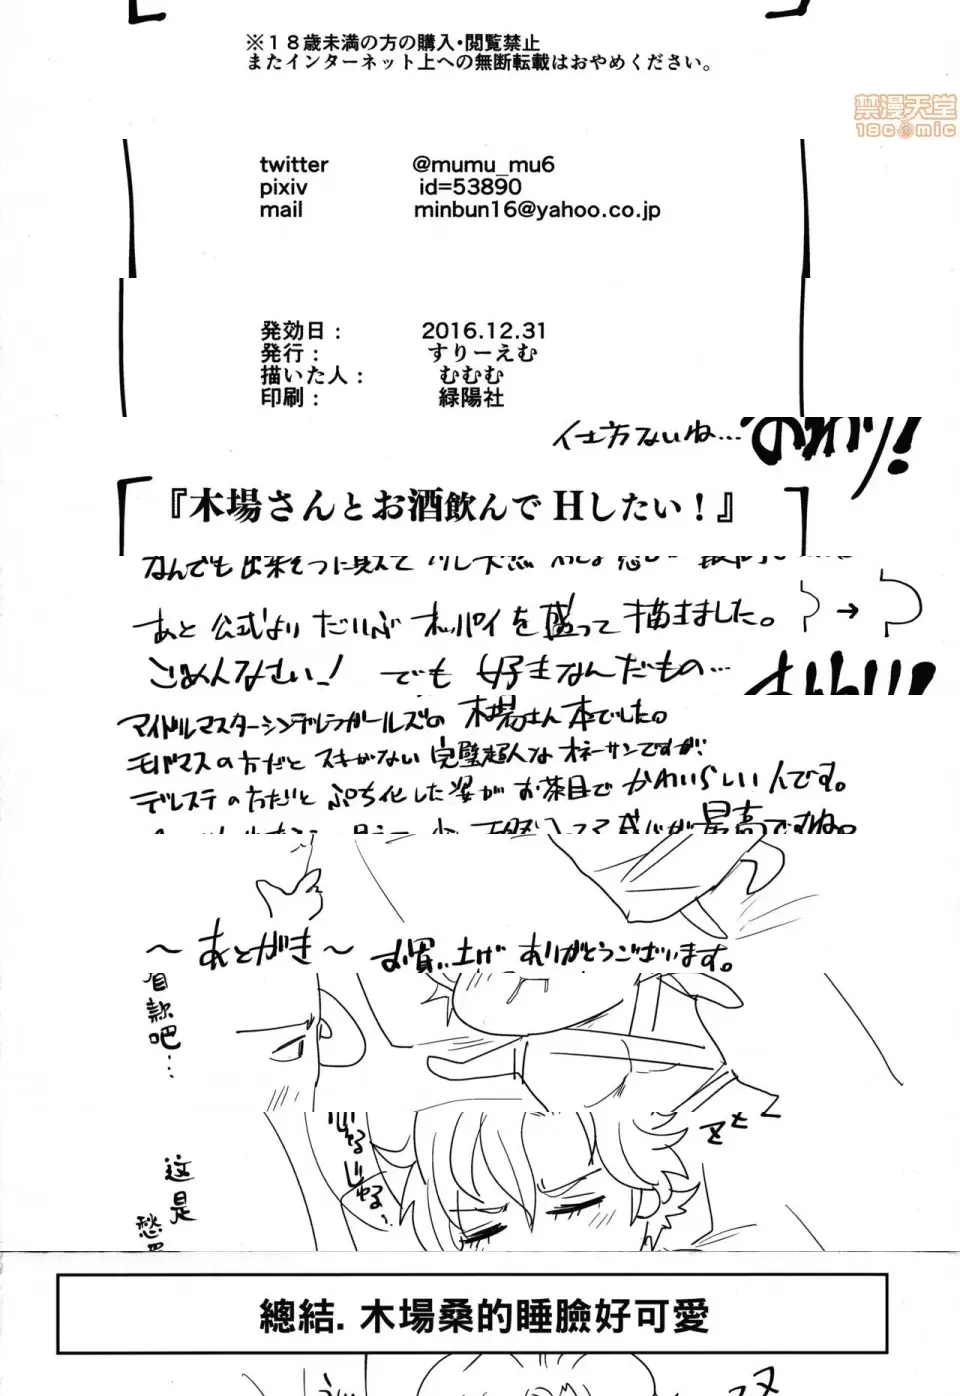 ※１８歳未満の方の購入・閲覧禁止
またインターネット上への無断転載はおやめください。
禁漫天堂
18comic
twitter @mumu_mu6
pixiv id=53890
mail minbun16@yahoo.co.jp
発効日： 2016.12.31
発行： すりーえむ
描いた人： むむむ
印刷： 緑陽社
仕方ないね… おわり！
『木場さんとお酒飲んでHしたい！』
あと 公式より だいぶ オッパイを 盛って 描きました。
ごめんなさいっ！ でも 好きなんだもの…
アイドルマスターシンデレラガールズの 木場さん本でした。
モバマスの方だと スキがない 完璧超人な オネーサンですが、
デレステの方だと ぷち化した姿が お茶目で かわいらしいんです。
最高ですね。
～あとがき～ お買い上げ ありがとうございます。
款吧…
这是
zzz
總結. 木場桑的睡臉好可愛